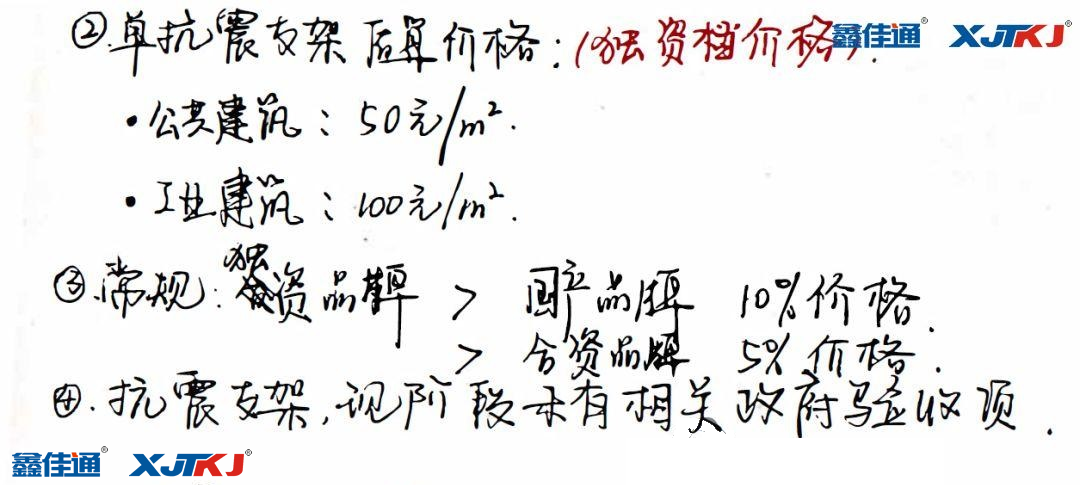 ②.单抗震支架估算价格:(独资档价格). 鑫佳通® XJTKJ®
•公共建筑:50元/m².
•工业建筑:100元/m².
③.常规:独资品牌 > 国产品牌 10%价格.
> 合资品牌 5%价格.
④.抗震支架,现阶段未有相关政府验收项.
鑫佳通® XJTKJ®